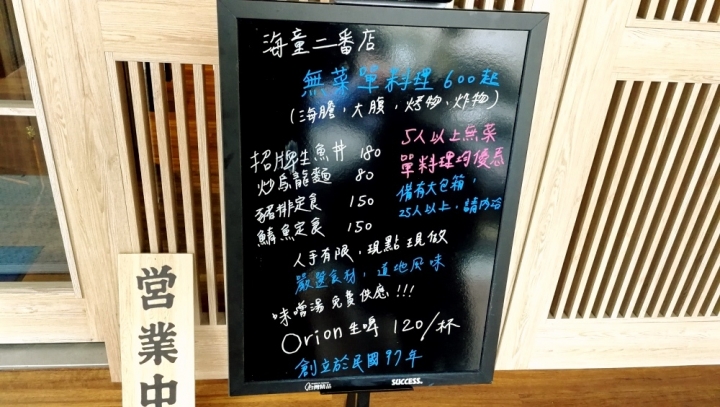 海童二番店
無菜單料理 600起
(海膽,大腹,烤物,炸物)
招牌生魚丼 180
炒烏龍麵 80
豬排定食 150
鯖魚定食 150
5人以上無菜
單料理均優惠
備有大包箱,
25人以上,請內洽
人手有限,現點現做
嚴選食材,道地風味
味噌湯免費供應!!!
Orion生啤 120/杯
創立於民國97年
台灣精品
SUCCESS.
営業中